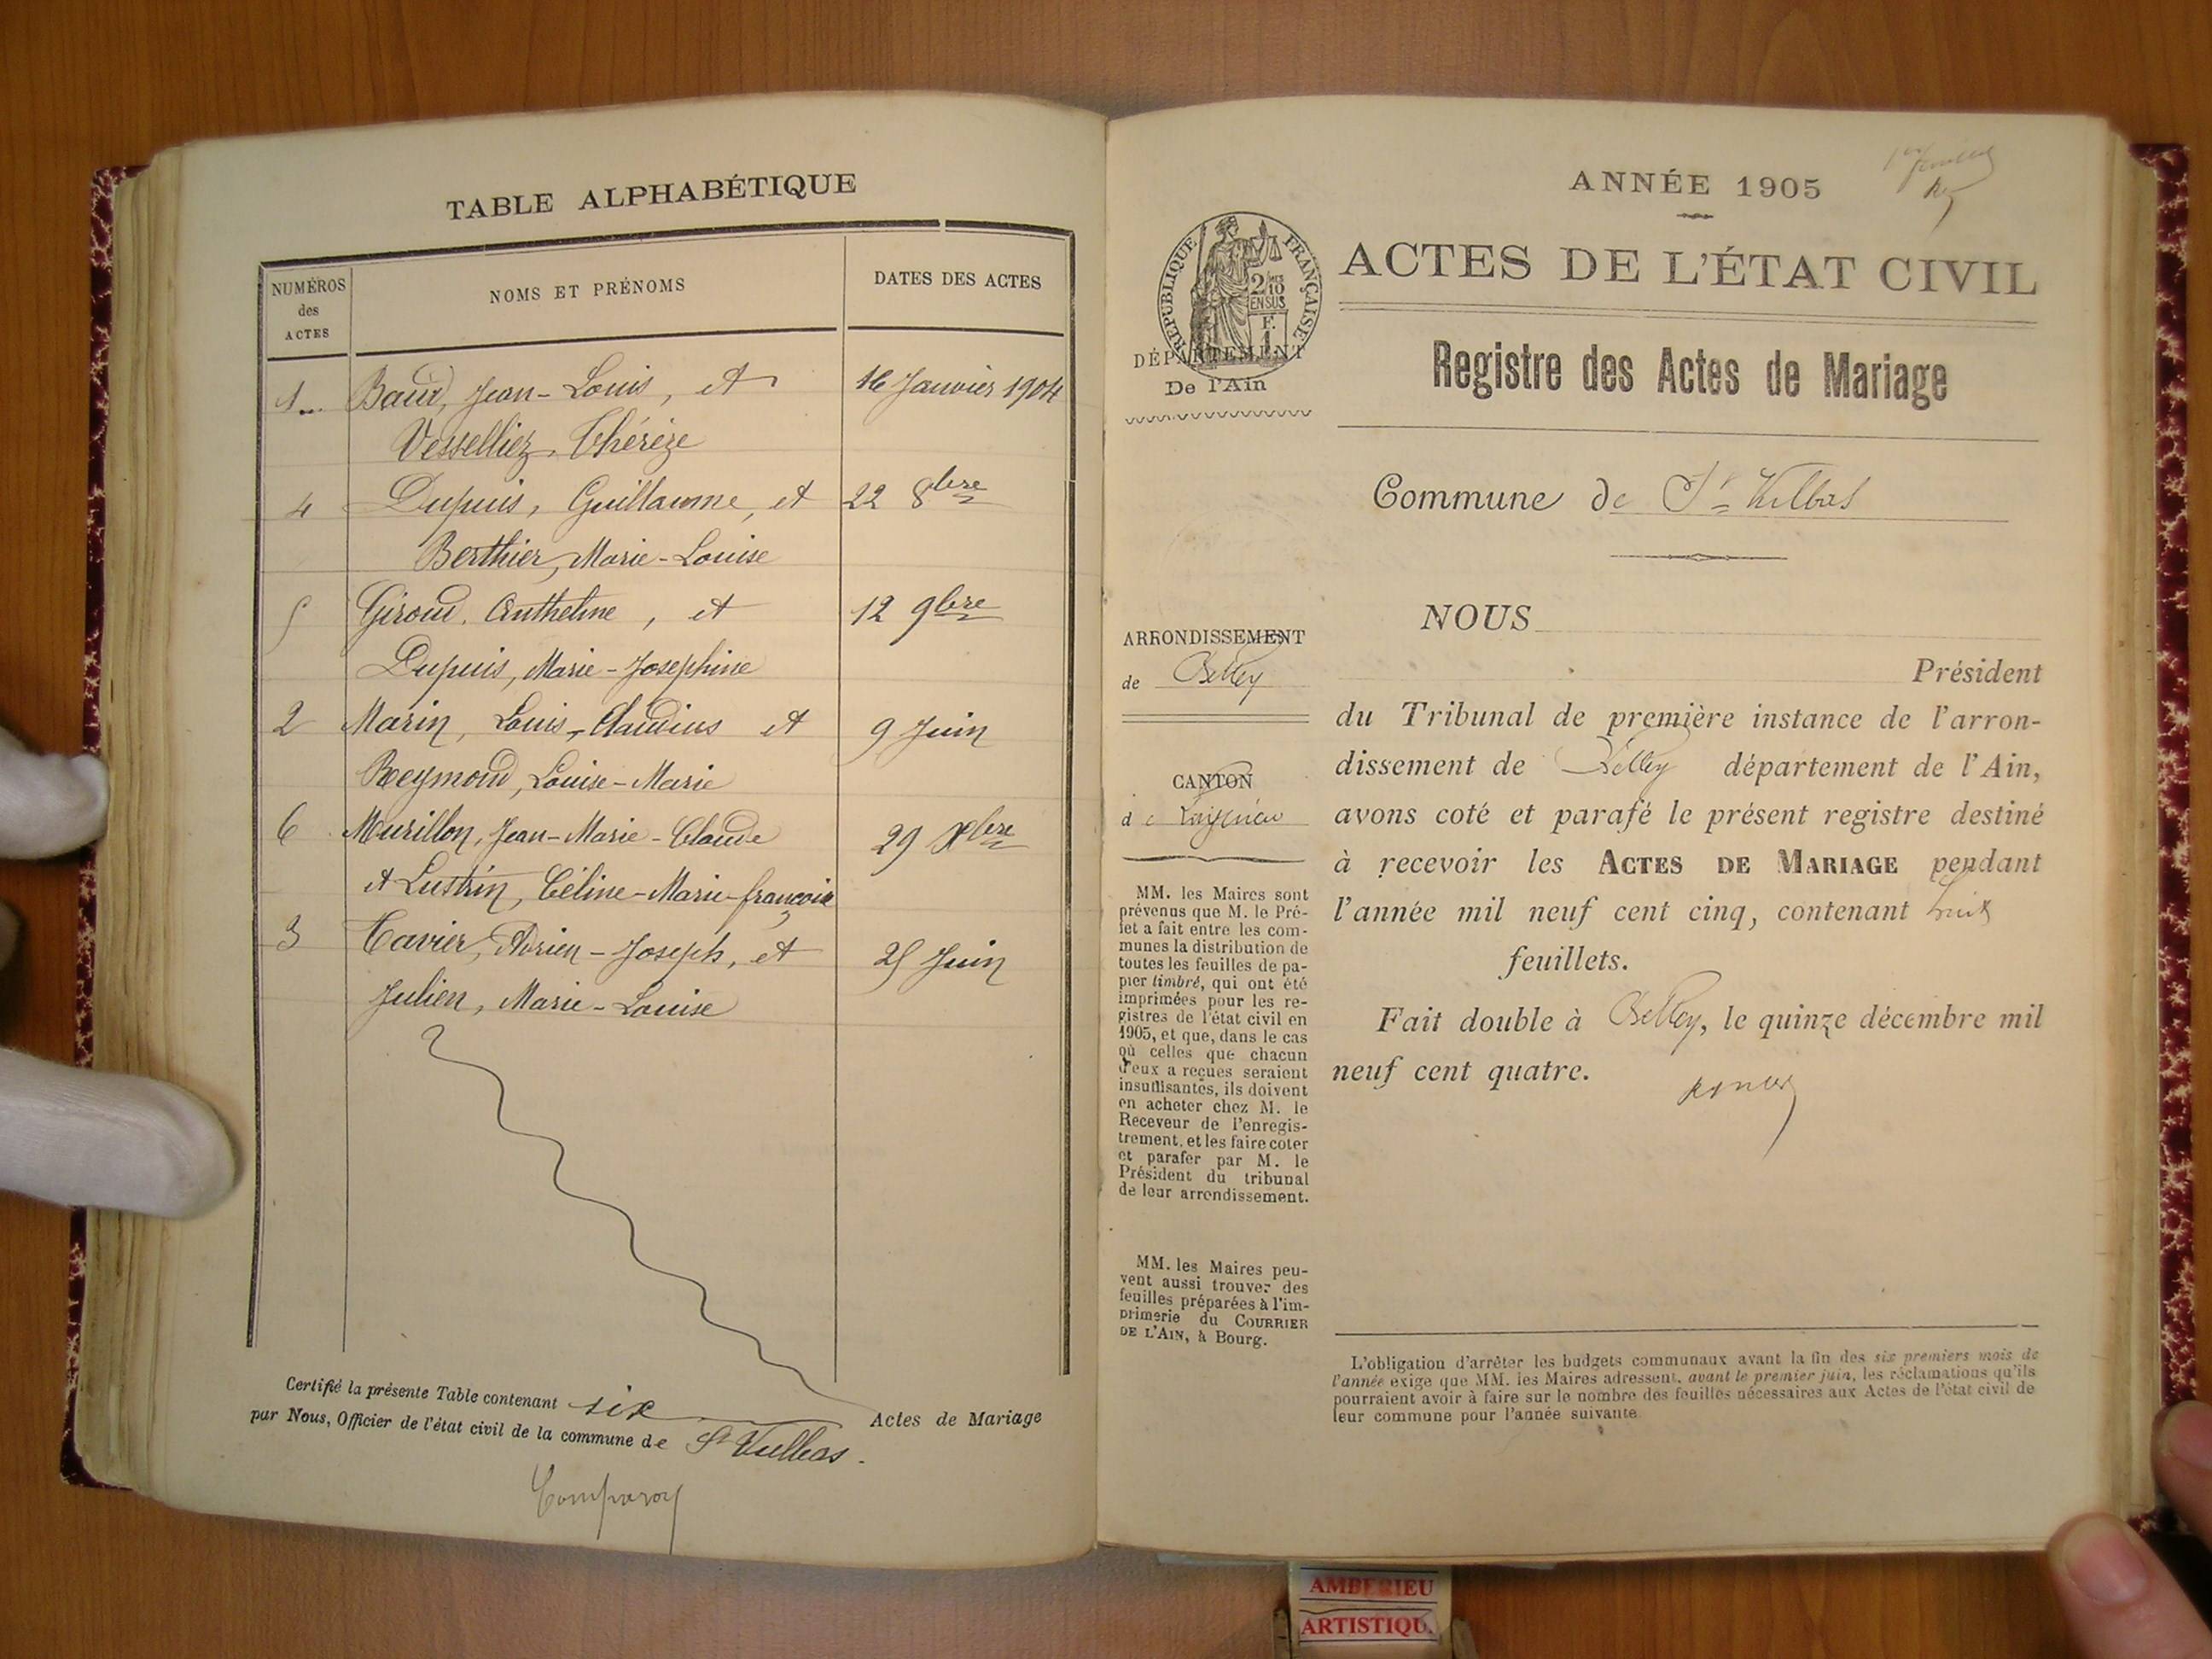 TABLE ALPHABÉTIQUE
NUMÉROS
des
ACTES
NOMS ET PRÉNOMS
DATES DES ACTES
1 Baud, Jean-Louis, et 16 Janvier 1904
Vesselliez, Thérèze
4 Dupuis, Guillaume, et 22 8bre
Berthier, Marie-Louise
5 Giroud, Anthelme, et 12 9bre
Dupuis, Marie-Josephine
2 Marin, Louis-Claudius et 9 Juin
Reymond, Louise-Marie
6 Murillon, Jean-Marie-Claude 29 Xbre
et Lustrin, Céline-Marie-françoise
3 Tavier, Adrien-Joseph, et 25 Juin
Julien, Marie-Louise
Certifié la présente Table contenant six Actes de Mariage
par Nous, Officier de l'état civil de la commune de St Vulbas.
ANNÉE 1905
1er feuillet
RÉPUBLIQUE FRANÇAISE
2/10
EN SUS
F.
1
DÉPARTEMENT
De l'Ain
ACTES DE L'ÉTAT CIVIL
Registre des Actes de Mariage
Commune de St Vulbas
ARRONDISSEMENT
de Belley
CANTON
de Lagnieu
MM. les Maires sont
prévenus que M. le Pré-
fet a fait entre les com-
munes la distribution de
toutes les feuilles de pa-
pier timbré, qui ont été
imprimées pour les re-
gistres de l'état civil en
1905, et que, dans le cas
où celles que chacun
d'eux a reçues seraient
insuffisantes, ils doivent
en acheter chez M. le
Receveur de l'enregis-
trement, et les faire coter
et parafer par M. le
Président du tribunal
de leur arrondissement.
MM. les Maires peu-
vent aussi trouver des
feuilles préparées à l'im-
primerie du COURRIER
DE L'AIN, à Bourg.
NOUS
Président
du Tribunal de première instance de l'arron-
dissement de Belley département de l'Ain,
avons coté et parafé le présent registre destiné
à recevoir les ACTES DE MARIAGE pendant
l'année mil neuf cent cinq, contenant huit
feuillets.
Fait double à Belley, le quinze décembre mil
neuf cent quatre.
L'obligation d'arrêter les budgets communaux avant la fin des six premiers mois de
l'année exige que MM. les Maires adressent, avant le premier juin, les réclamations qu'ils
pourraient avoir à faire sur le nombre des feuilles nécessaires aux Actes de l'état civil de
leur commune pour l'année suivante.
AMBERIEU
ARTISTIQU